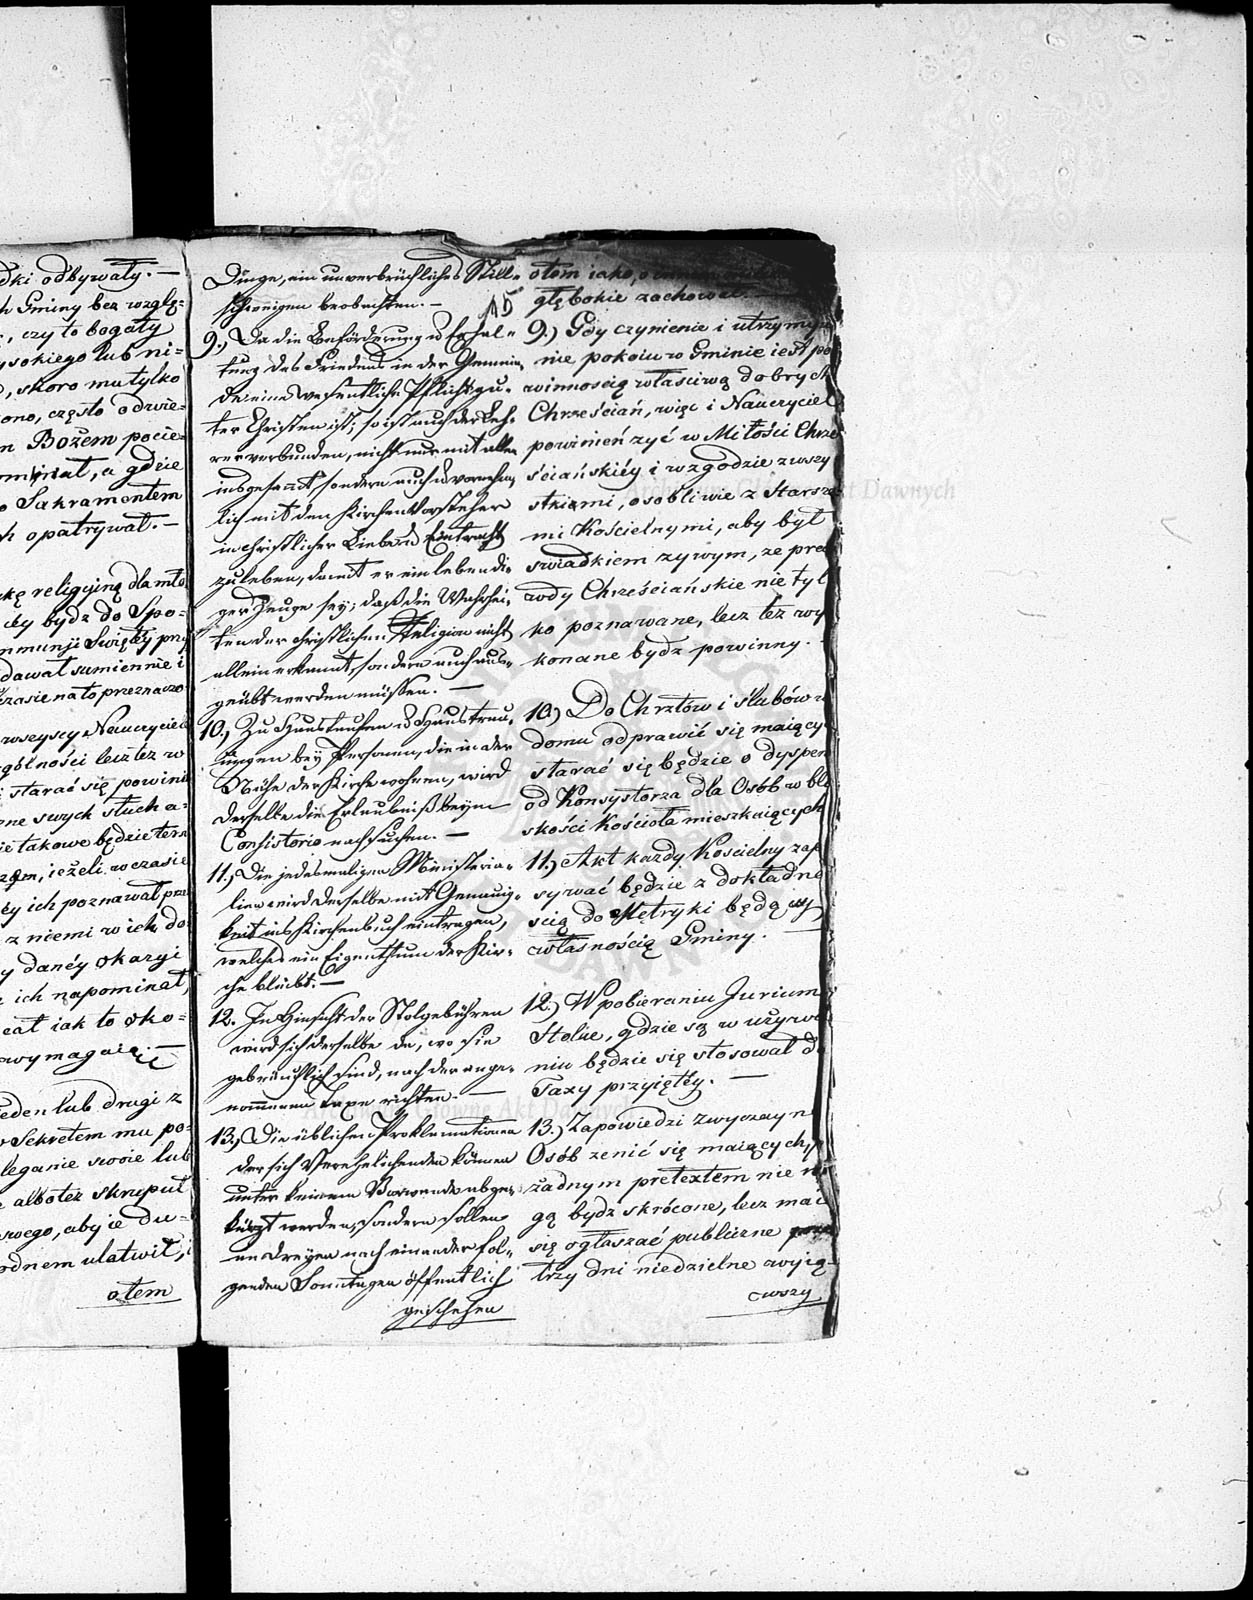 dki odbywały. —
h Gminy bez wzglę-
, czy to bogaty
ysokiego lub ni-
, skoro mu tylko
iono, często odwie-
m Bożem pocie-
ominat, a gdzie
o Sakramentem
h opatrywał. —
kę religijną dla mło-
cey bydz do Spo-
mmunji Swiętey przy
dawał sumiennie i
czasie na to przeznaczo
wszyscy Nauczyciel
gólności lecz też w
i starać się powini
ne swych słucha-
ie takowe będzie tem
zem, ieżeli w czasie
ey ich poznawał prze
z niemi w ich do
y daney okazyi
ich napominał,
cał iak to oko-
wymagaią. —
ieden lub drugi z
Sekretem mu po-
leganie swoie lub
albo też skrupuł
swego, aby ie du-
odnem ułatwił, i
otem
Dinge, ein unverbrüchliches Still-
schweigen beobachten. —
15
9.) Da die Beförderung u Erhal-
tung des Friedens in der Gemein-
de eine wesentliche Pflicht gu-
ter Christen ist; so ist auch der Leh-
rer verbunden, nicht nur mit allen
insgesammt, sondern auch u vornehm-
lich mit den Kirchen Vorsteher
in christlicher Liebe u Eintracht
zu leben, damit er ein lebendi-
ger Zeuge sey; daß die Wahrhei-
ten der christlichen Religion nicht
allein erkannt, sondern auch aus-
geübt werden müssen. —
10.) Zu Haustaufen u Haustrau-
ungen bey Personen, die in der
Nähe der Kirche wohnen, wird
derselbe die Erlaubniß beym
Consistorio nachsuchen. —
11.) Die jedesmaligen Ministeria-
lien wird derselbe mit Genauig-
keit ins Kirchenbuch eintragen,
welches ein Eigenthum der Kir-
che bleibt. —
12. In Hinsicht der Stolgebühren
wird sich derselbe da, wo sie
gebräuchlich sind, nach der ange-
nommenen Taxe richten. —
13.) Die üblichen Proklamationen
der sich Verehelichenden können
unter keinem Vorwande abge-
kürzt werden, sondern sollen
an dreyen nach einander fol-
genden Sonntagen öffentlich
geschehen
otem iako, o
głębokie zachować. —
9.) Gdy czynienie i utrzyma
nie pokoiu w Gminie iest po
winnością właściwą dobrych
Chrześcian, więc i Nauczyciel
powinień żyć w Miłości Chrze
ściańskiéy i w zgodzie z wszy
stkiemi, osobliwie z Starsze
mi Kościelnymi, aby był
swiadkiem żywym, że pra
wdy Chrześciańskie nie tyl
ko poznawane, lecz też wy
konane bydz powinny.
10.) Do Chrztów i ślubów w
domu odprawić się maiący
starać się będzie o dyspen
od Konsystorza dla Osób w bli
skości Kościoła mieszkaiących
11.) Akt każdy Kościelny zap
sywać będzie z dokładno
ścią do Metryki będący
własnością Gminy. —
12.) W pobieraniu Jurium
Stolae, gdzie są w używa
niu będzie się stosował do
Taxy przyiętéy. —
13.) Zapowiedzi zwyczayn
Osób żenić się maiących,
żadnym pretextem nie mo
gą bydz skrócone, lecz mai
się ogłaszać publiczne przez
trzy dni niedzielne wyią-
wszy
Archiwum Główne Akt Dawnych
Archiwum Główne Akt Dawnych